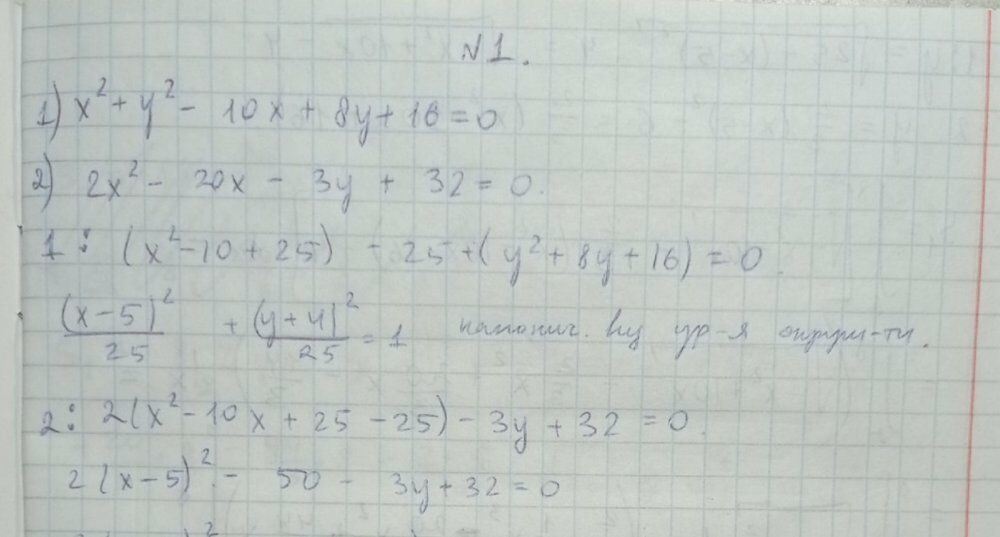 №1.
1) x² + y² - 10x + 8y + 16 = 0
2) 2x² - 20x - 3y + 32 = 0.
1: (x² - 10 + 25) - 25 + (y² + 8y + 16) = 0.
(x-5)²/25 + (y+4)²/25 = 1 канонич. вид ур-я окруж-ти.
2: 2(x² - 10x + 25 - 25) - 3y + 32 = 0.
2(x-5)² - 50 - 3y + 32 = 0